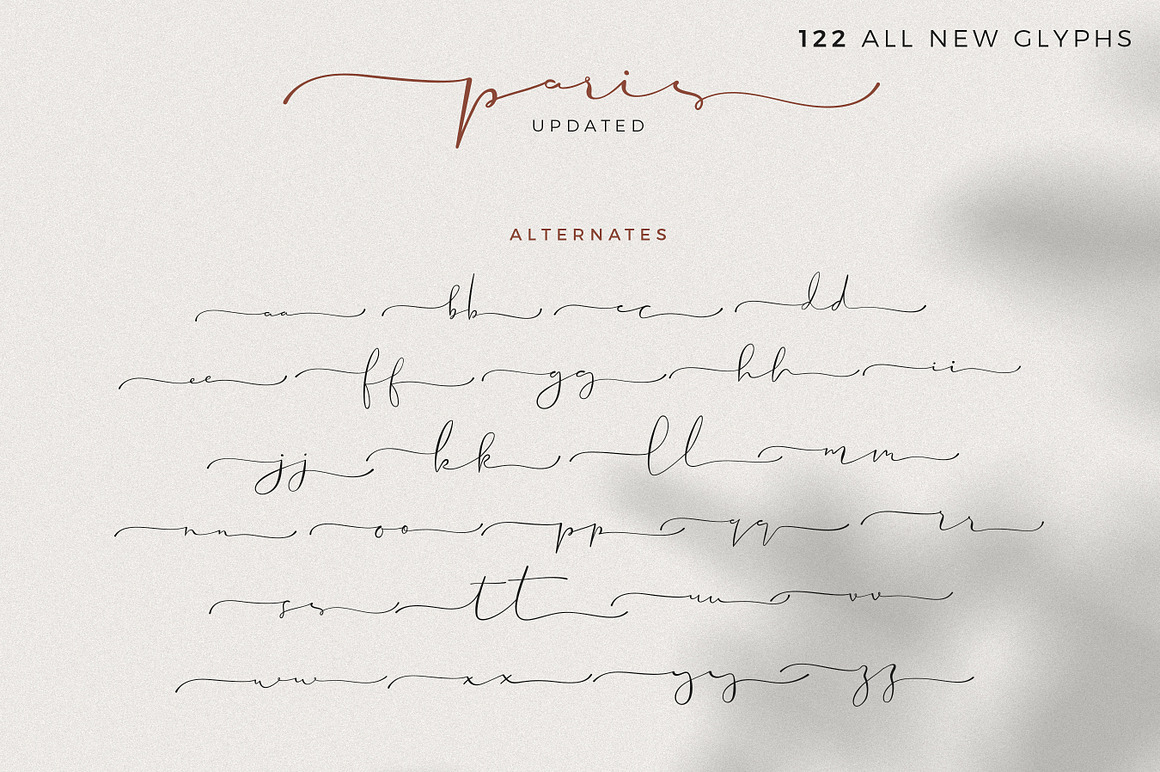 122 ALL NEW GLYPHS
paris
UPDATED
ALTERNATES
aa bb cc dd
ee ff gg hh ii
jj kk ll mm
nn oo pp qq rr
ss tt uu vv
ww xx yy zz